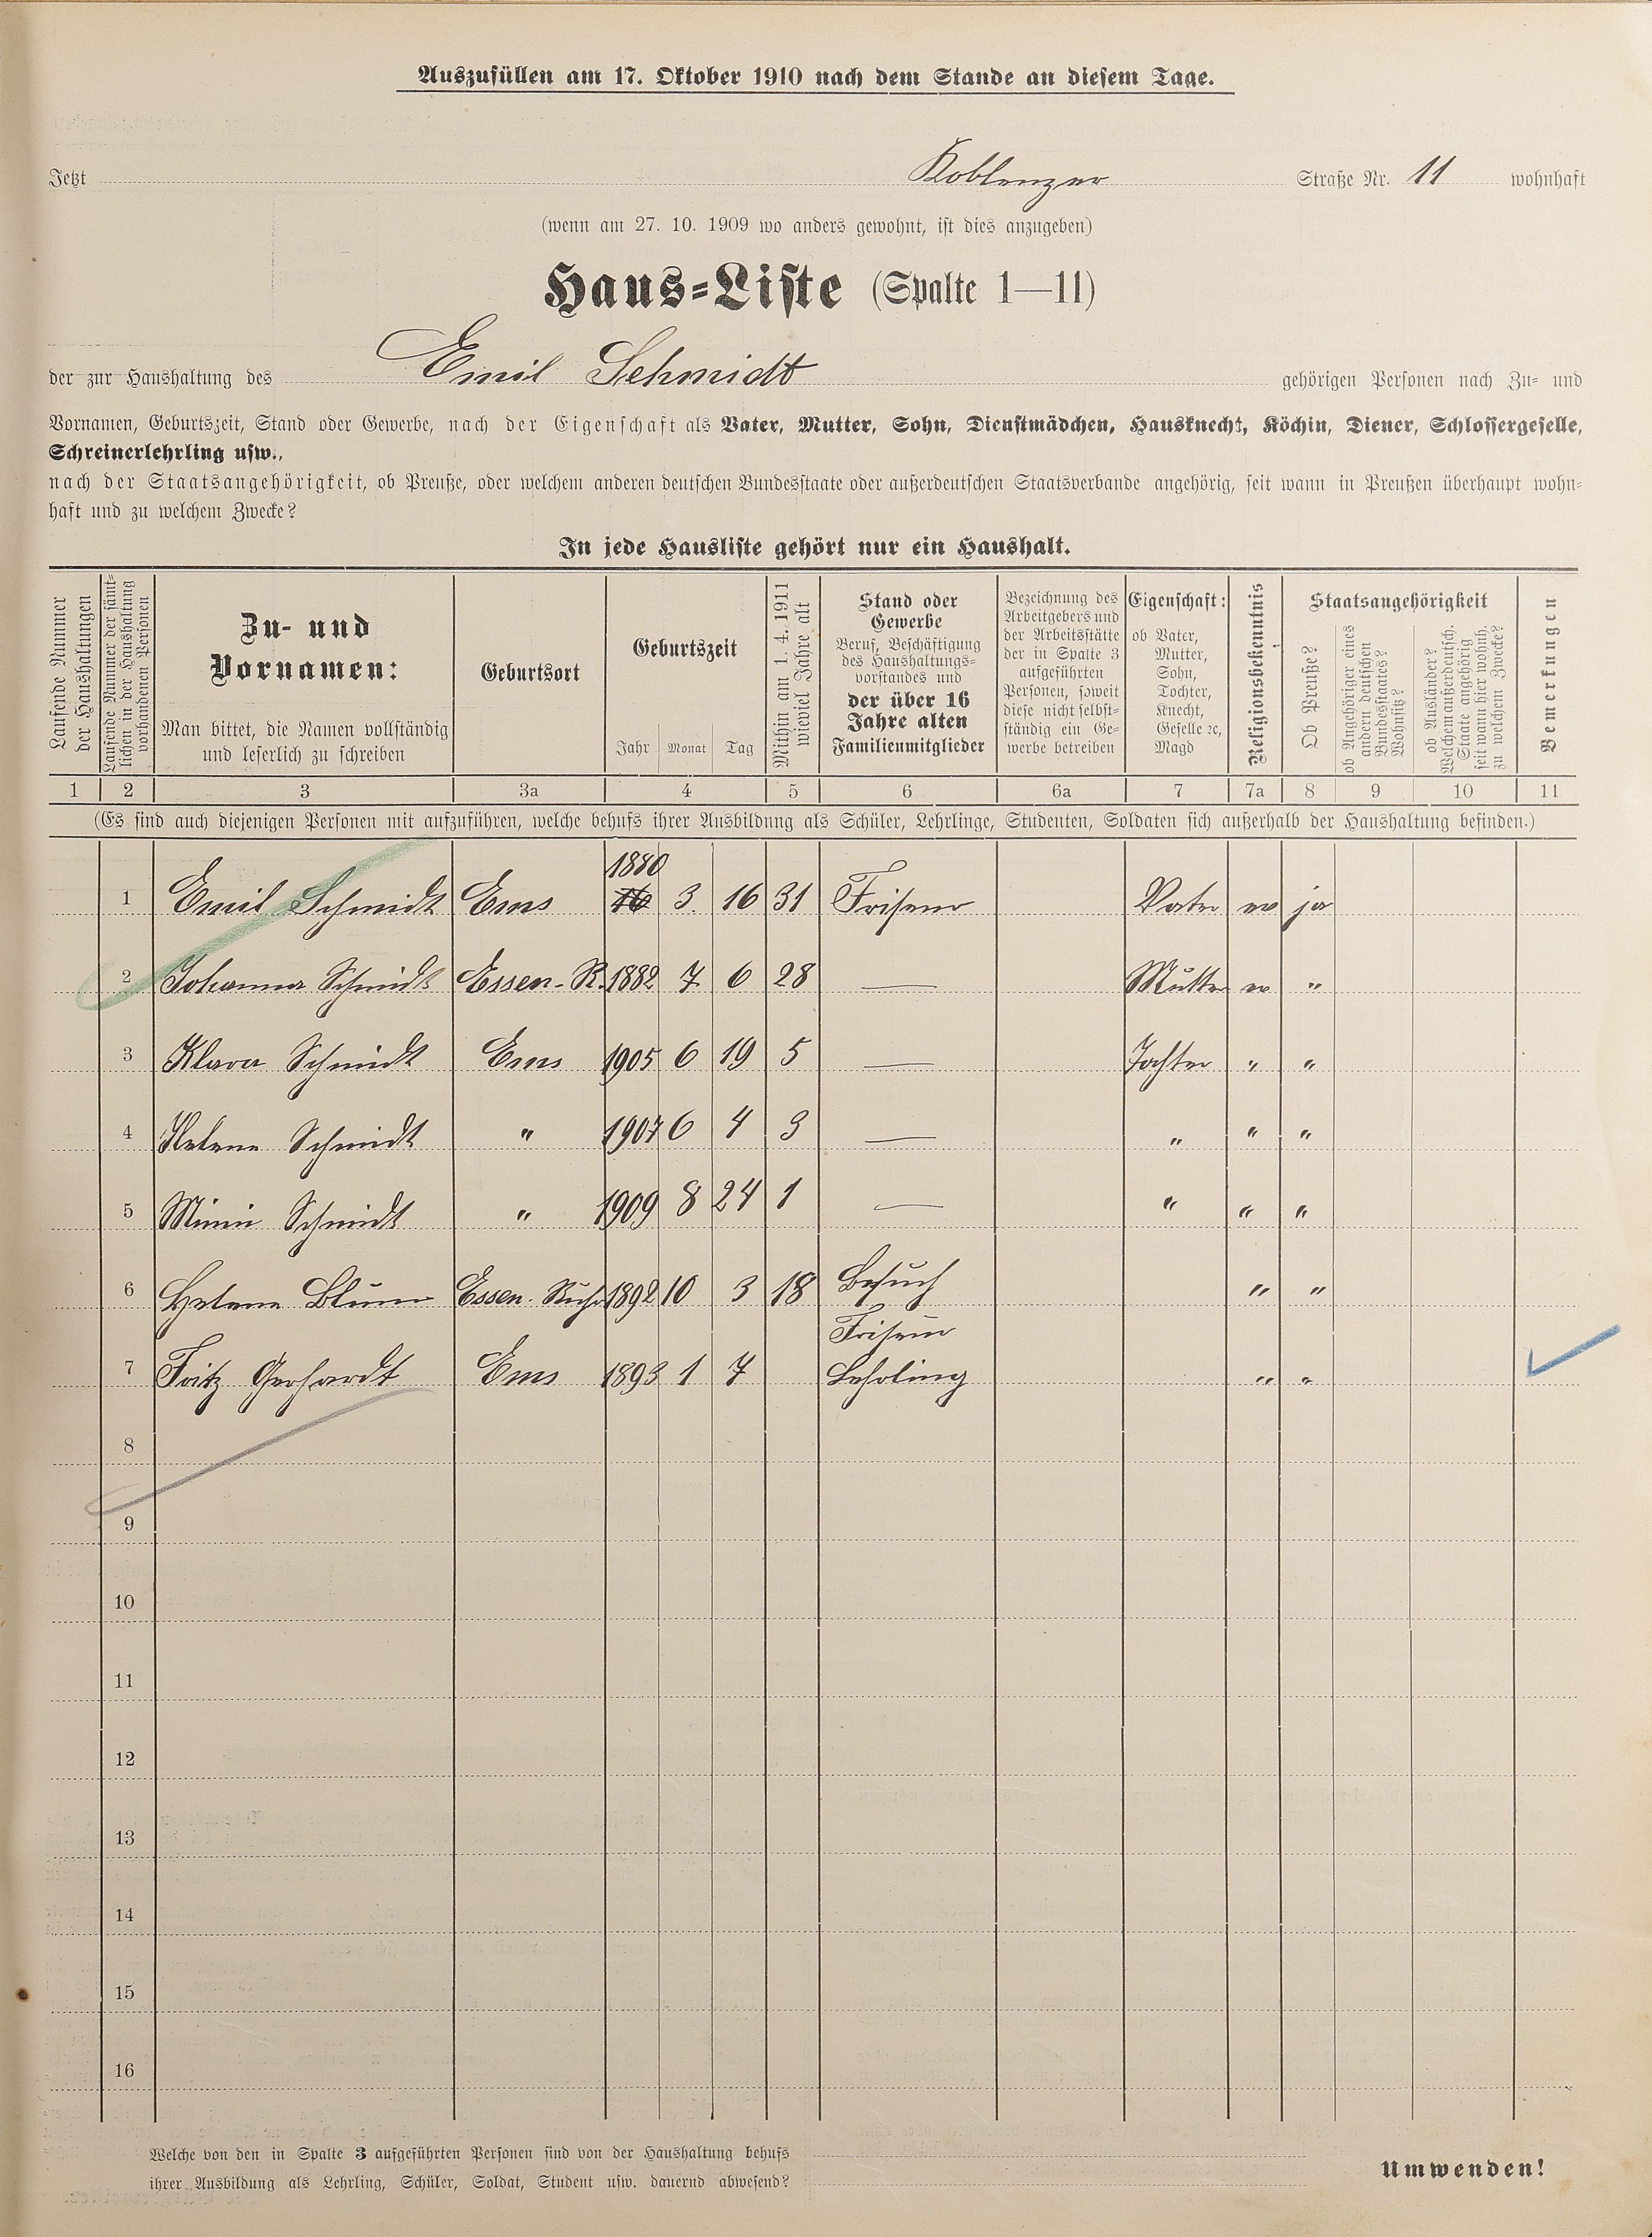 Auszufüllen am 17. Oktober 1910 nach dem Stande an diesem Tage.
Jetzt Koblenzer Straße Nr. 11 wohnhaft
(wenn am 27. 10. 1909 wo anders gewohnt, ist dies anzugeben)
Haus-Liste (Spalte 1—11)
der zur Haushaltung des Emil Schmidt gehörigen Personen nach Zu- und
Vornamen, Geburtszeit, Stand oder Gewerbe, nach der Eigenschaft als Vater, Mutter, Sohn, Dienstmädchen, Hausknecht, Köchin, Diener, Schlossergeselle,
Schreinerlehrling usw.,
nach der Staatsangehörigkeit, ob Preuße, oder welchem anderen deutschen Bundesstaate oder außerdeutschen Staatsverbande angehörig, seit wann in Preußen überhaupt wohn-
haft und zu welchem Zwecke?
In jede Hausliste gehört nur ein Haushalt.
Laufende Nummer
der Haushaltungen
Laufende Nummer der sämt-
lichen in der Haushaltung
vorhandenen Personen
Zu- und
Vornamen:
Man bittet, die Namen vollständig
und leserlich zu schreiben
Geburtsort
Geburtszeit
Jahr Monat Tag
Mithin am 1. 4. 1911
wieviel Jahre alt
Stand oder
Gewerbe
Beruf, Beschäftigung
des Haushaltungs-
vorstandes und
der über 16
Jahre alten
Familienmitglieder
Bezeichnung des
Arbeitgebers und
der Arbeitsstätte
der in Spalte 3
aufgeführten
Personen, soweit
diese nicht selbst-
ständig ein Ge-
werbe betreiben
Eigenschaft:
ob Vater,
Mutter,
Sohn,
Tochter,
Knecht,
Geselle ꝛc,
Magd
Religionsbekenntnis
Staatsangehörigkeit
Ob Preuße?
ob Angehöriger eines
andern deutschen
Bundesstaates?
Wohnsitz?
ob Ausländer?
Welchem außerdeutsch.
Staate angehörig
seit wann hier wohnh.
zu welchem Zwecke?
Bemerkungen
1 2 3 3a 4 5 6 6a 7 7a 8 9 10 11
(Es sind auch diejenigen Personen mit aufzuführen, welche behufs ihrer Ausbildung als Schüler, Lehrlinge, Studenten, Soldaten sich außerhalb der Haushaltung befinden.)
1880
1 Emil Schmidt Ems 3. 16 31 Friseur Vater ev ja
2 Johanna Schmidt Essen-R. 1882 7 6 28 — Mutter ev "
3 Klara Schmidt Ems 1905 6 19 5 — Tochter " "
4 Helene Schmidt " 1907 6 4 3 — " " "
5 Minni Schmidt " 1909 8 24 1 — " " "
6 Helene Blum Essen-Ruhr 1892 10 3 18 Besuch " "
Friseur
7 Fritz Gerhardt Ems 1893 1 7 Lehrling " "
8
9
10
11
12
13
14
15
16
Welche von den in Spalte 3 aufgeführten Personen sind von der Haushaltung behufs
ihrer Ausbildung als Lehrling, Schüler, Soldat, Student usw. dauernd abwesend?
Umwenden!